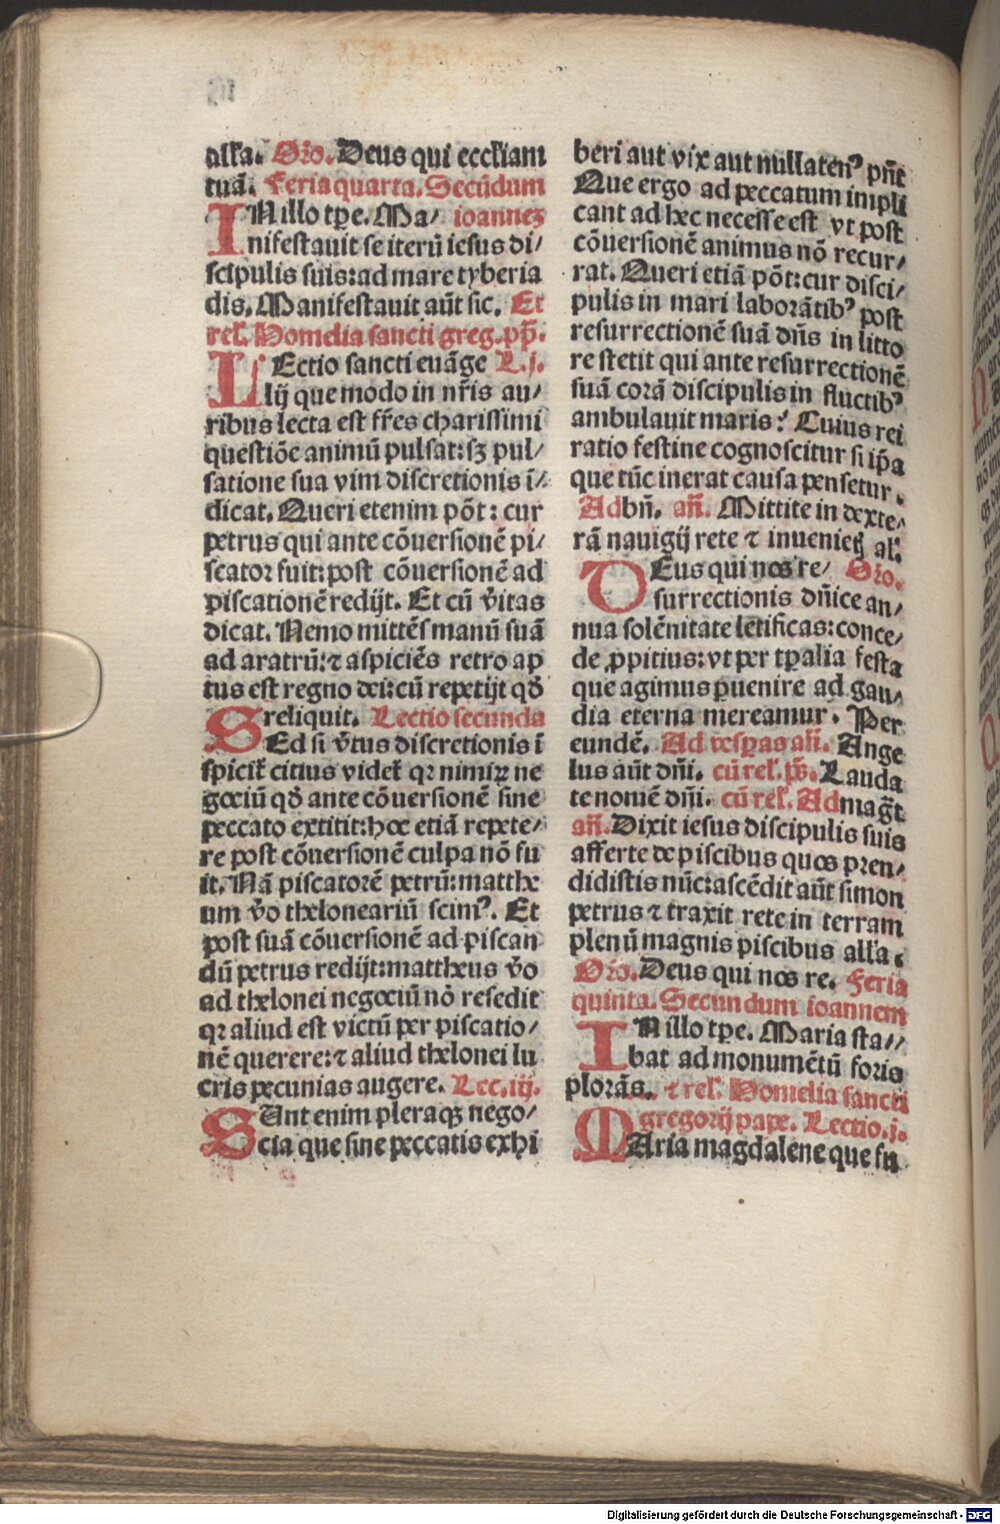 alľa. Oŕo. Deus qui eccľiam
tuã. Feria quarta. Secũdum
IN illo tꝑe. Ma/ ioanneʒ
nifestauit se iterũ iesus di/
scipulis suis: ad mare tyberia
dis. Manifestauit aũt sic. Et
reľ. Homelia sancti greg. pp̃.
LEctio sancti euãge L. j.
lij que modo in nr̃is au/
ribus lecta est fr̃es charissimi
questiõe animũ pulsat: sʒ pul/
satione sua vim discretionis ĩ/
dicat. Queri etenim põt: cur
petrus qui ante cõuersionẽ pi/
scator fuit: post cõuersionẽ ad
piscationẽ redijt. Et cũ ṽitas
dicat. Nemo mittẽs manũ suã
ad aratrũ: ⁊ aspiciẽs retro ap
tus est regno dei: cũ repetijt qð
reliquit. Lectio secunda
SEd si ṽtus discretionis ĩ
spicit̃ citius videt̃ qꝛ nimiꝝ ne
gociũ qð ante cõuersionẽ sine
peccato extitit: hoc etiã repete/
re post cõuersionẽ culpa nõ fu
it. Nã piscatorẽ petrũ: matthe
um ṽo theloneariũ scimꝰ. Et
post suã cõuersionẽ ad piscan
dũ petrus redijt: mattheus ṽo
ad thelonei negociũ nõ resedit
qꝛ aliud est victũ per piscatio/
nẽ querere: ⁊ aliud thelonei lu
cris pecunias augere. Lec. iij.
SUnt enim pleraqꝫ nego/
cia que sine peccatis exhi
beri aut vix aut nullatenꝰ pñt
Que ergo ad peccatum impli
cant ad hec necesse est vt post
cõuersionẽ animus nõ recur/
rat. Queri etiã põt: cur disci/
pulis in mari laborãtibꝰ post
resurrectionẽ suã dñs in litto
re stetit qui ante resurrectionẽ
suã corã discipulis in fluctibꝰ
ambulauit maris? Cuius rei
ratio festine cognoscitur si ip̃a
que tũc inerat causa pensetur.
Ad bñ. añ. Mittite in dexte/
rã nauigij rete ⁊ inuenietꝭ al̃.
DEus qui nos re/ Oŕo.
surrectionis dñice an/
nua solẽnitate letificas: conce/
de ꝓpitius: vt per tꝑalia festa
que agimus ꝑuenire ad gau/
dia eterna mereamur. Per
eundẽ. Ad vesperas añ. Ange
lus aũt dñi. cũ reľ. p̃s. Lauda
te nomẽ dñi. cũ reľ. Ad mag̃t
añ. Dixit iesus discipulis suis
afferte de piscibus quos pren/
didistis nũc: ascẽdit aũt simon
petrus ⁊ traxit rete in terram
plenũ magnis piscibus alľa.
Oŕo. Deus qui nos re. Feria
quinta. Secundum ioannem
IN illo tꝑe. Maria sta//
bat ad monumẽtũ foris
plorãs. ⁊ reľ. Homelia sancti
gregorij pape. Lectio. j.
MAria magdalene que fu
Digitalisierung gefördert durch die Deutsche Forschungsgemeinschaft - DFG